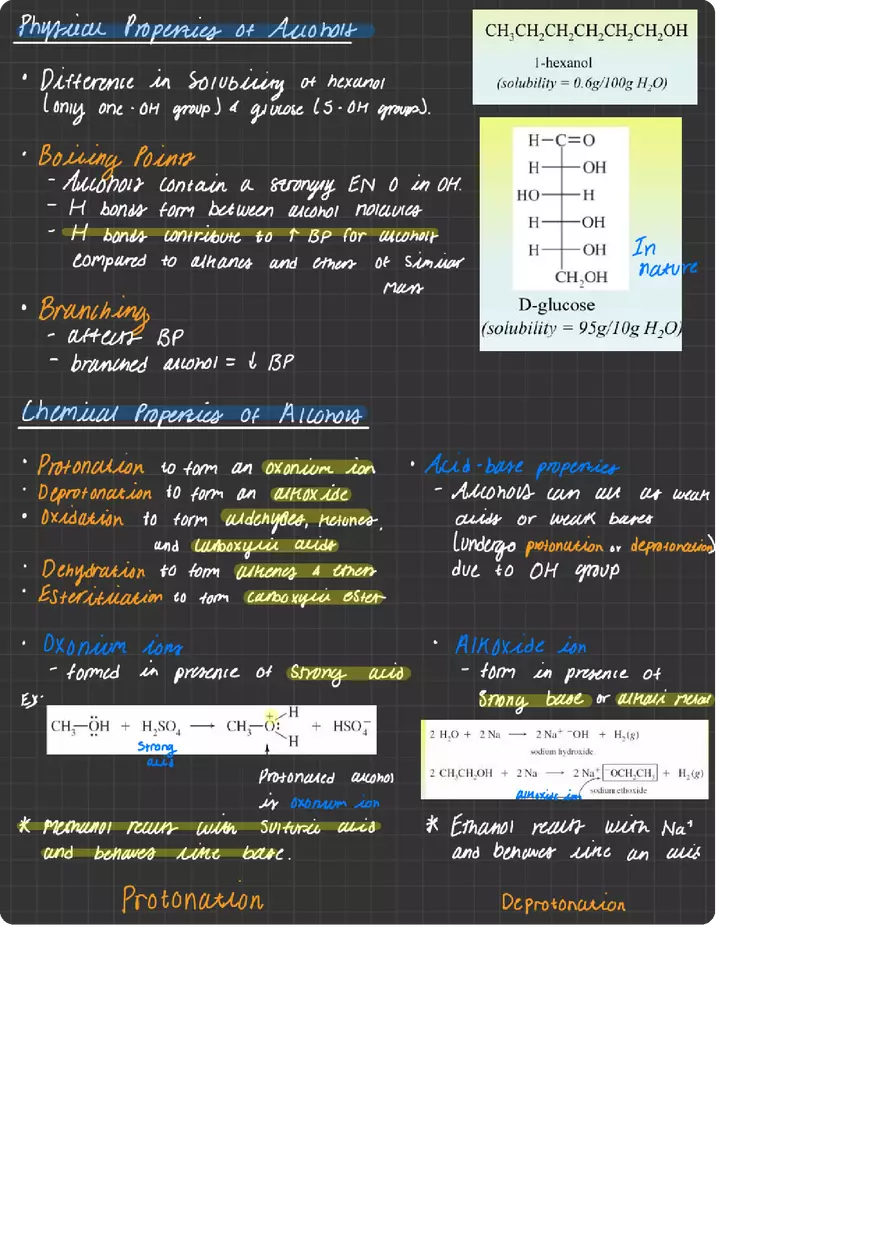 Physical Properties of Alcohols
• Difference in solubility of hexanol
(only one -OH group) & glucose (5 -OH groups).
CH₃CH₂CH₂CH₂CH₂CH₂OH
1-hexanol
(solubility = 0.6g/100g H₂O)
• Boiling Points
- Alcohols contain a strongly EN O in OH.
- H bonds form between alcohol molecules
- H bonds contribute to ↑ BP for alcohols
compared to alkanes and ethers of similar
mass
H—C=O
H—OH
HO—H
H—OH
H—OH
CH₂OH
In
nature
D-glucose
(solubility = 95g/10g H₂O)
• Branching
- affects BP
- branched alcohol = ↓ BP
Chemical Properties of Alcohols
• Protonation to form an oxonium ion
• Deprotonation to form an alkoxide
• Oxidation to form aldehydes, ketones,
and carboxylic acids
• Dehydration to form alkenes & ethers
• Esterification to form carboxylic ester
• Acid-base properties
- Alcohols can act as weak
acids or weak bases
(undergo protonation or deprotonation)
due to OH group
• Oxonium ions
- formed in presence of strong acid
Ex:
CH₃—ÖH + H₂SO₄ ⟶ CH₃—O⁺: H H + HSO₄⁻
Strong
acid
Protonated alcohol
is oxonium ion
* Methanol reacts with sulfuric acid
and behaves like base.
Protonation
• Alkoxide ion
- form in presence of
strong base or alkali metal
2 H₂O + 2 Na ⟶ 2 Na⁺ ⁻OH + H₂(g)
sodium hydroxide
2 CH₃CH₂OH + 2 Na ⟶ 2 Na⁺ ⁻OCH₂CH₃ + H₂(g)
Alkoxide ion sodium ethoxide
* Ethanol reacts with Na⁺
and behaves like an acid
Deprotonation